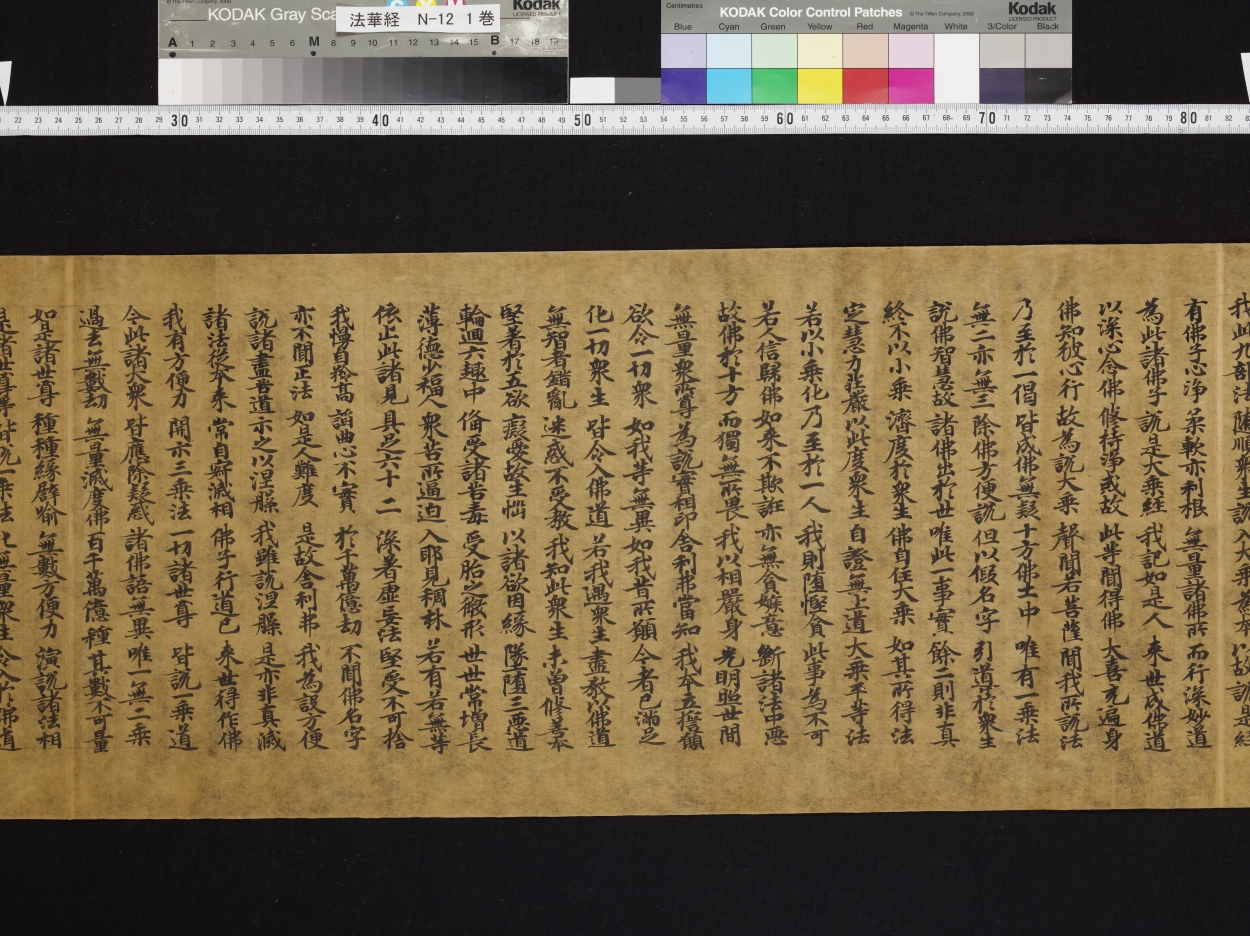 KODAK Gray Sca
Kodak
LICENSED PRODUCT
法華経 N-12 1巻
A 1 2 3 4 5 6 M 8 9 10 11 12 13 14 15 B 17 18 19
Centimetres
KODAK Color Control Patches
© The Tiffen Company, 2000
Kodak
LICENSED PRODUCT
Blue Cyan Green Yellow Red Magenta White 3/Color Black
22 23 24 25 26 27 28 29 30 31 32 33 34 35 36 37 38 39 40 41 42 43 44 45 46 47 48 49 50 51 52 53 54 55 56 57 58 59 60 61 62 63 64 65 66 67 68 69 70 71 72 73 74 75 76 77 78 79 80 81 82
我此九部法 隨順衆生說 入大乗為本 以故說是経
有佛子心淨 柔軟亦利根 無量諸佛所 而行深妙道
為此諸佛子 說是大乗経 我記如是人 来世成佛道
以深心念佛 修持淨戒故 此等聞得佛 大喜充遍身
佛知彼心行 故為說大乗 聲聞若菩薩 聞我所說法
乃至於一偈 皆成佛無疑 十方佛土中 唯有一乗法
無二亦無三 除佛方便說 但以假名字 引道於衆生
說佛智慧故 諸佛出於世 唯此一事實 餘二則非真
終不以小乗 濟度於衆生 佛自住大乗 如其所得法
定慧力莊嚴 以此度衆生 自證無上道 大乗平等法
若以小乗化 乃至於一人 我則堕慳貪 此事為不可
若人信歸佛 如来不欺誑 亦無貪嫉意 斷諸法中悪
故佛於十方 而獨無所畏 我以相嚴身 光明照世間
無量衆所尊 為說實相印 舎利弗當知 我本立擔願
欲令一切衆 如我等無異 如我昔所願 今者已滿足
化一切衆生 皆令入佛道 若我遇衆生 盡教以佛道
無智者錯亂 迷惑不受教 我知此衆生 未曾修善本
堅著於五欲 癡愛故生惱 以諸欲因縁 墜堕三悪道
輪迴六趣中 備受諸苦毒 受胎之微形 世世常増長
薄德少福人 衆苦所逼迫 入耶見稠林 若有若無等
依止此諸見 具足六十二 深著虛妄法 堅受不可捨
我慢自矜高 諂曲心不實 於千萬億劫 不聞佛名字
亦不聞正法 如是人難度 是故舎利弗 我為設方便
說諸盡苦道 示之以涅槃 我雖說涅槃 是亦非真滅
諸法從本来 常自寂滅相 佛子行道已 来世得作佛
我有方便力 開示三乗法 一切諸世尊 皆說一乗道
今此諸大衆 皆應除疑惑 諸佛語無異 唯一無二乗
過去無數劫 無量滅度佛 百千萬億種 其數不可量
如是諸世尊 種種縁譬喻 無數方便力 演說諸法相
是諸世尊等 皆說一乗法 化無量衆生 令入於佛道